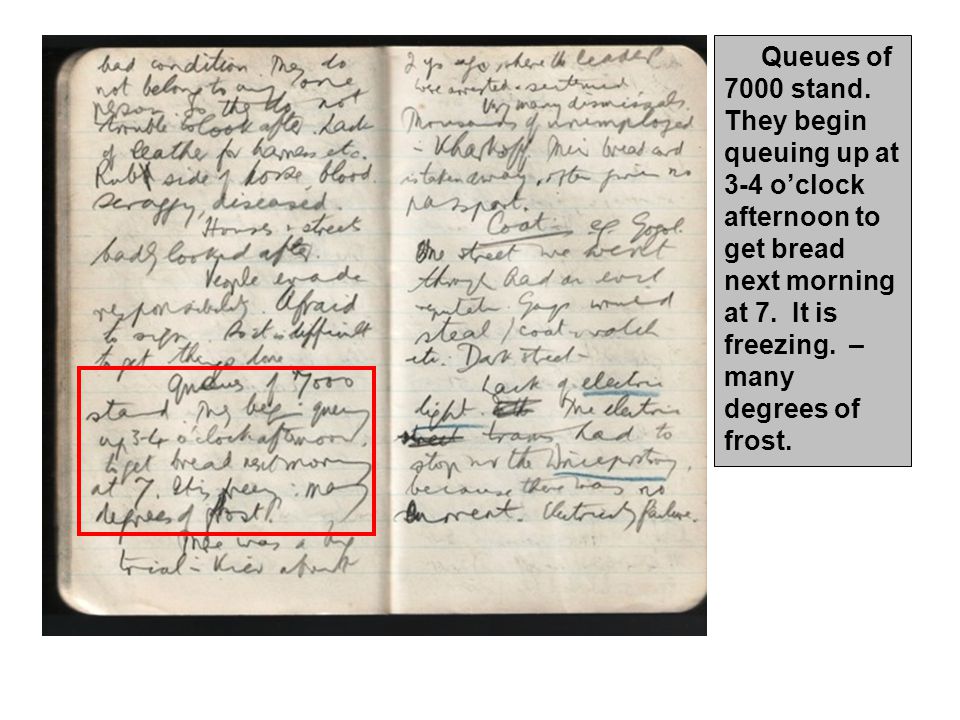 bad condition. They do
not belong to any one
person. So they do not
trouble to look after. Lack
of leather for harness etc.
Rub side of horse, blood
scraggy, diseased.
Houses + streets
badly looked after.
People evade
responsibility. Afraid
to sign. So it is difficult
to get things done
Queues of 7000
stand. They begin queuing
up 3-4 o'clock afternoon,
to get bread next morning
at 7. It is freezing. many
degrees of frost.
There was a big
trial - Kiev about
2 yrs ago, where the leaders
were arrested + sentenced.
Very many dismissals.
Thousands of unemployed
- Kharkoff. Their bread card
is taken away, often given no
passport.
Coat - cf Gogol.
One street we went
through had an evil
reputation. Gangs would
steal / coat - watch
etc. Dark street -
Lack of electric
light. The electric
trams had to
stop
because there was no
current. Electricity failure.
Queues of
7000 stand.
They begin
queuing up at
3-4 o’clock
afternoon to
get bread
next morning
at 7. It is
freezing. –
many
degrees of
frost.